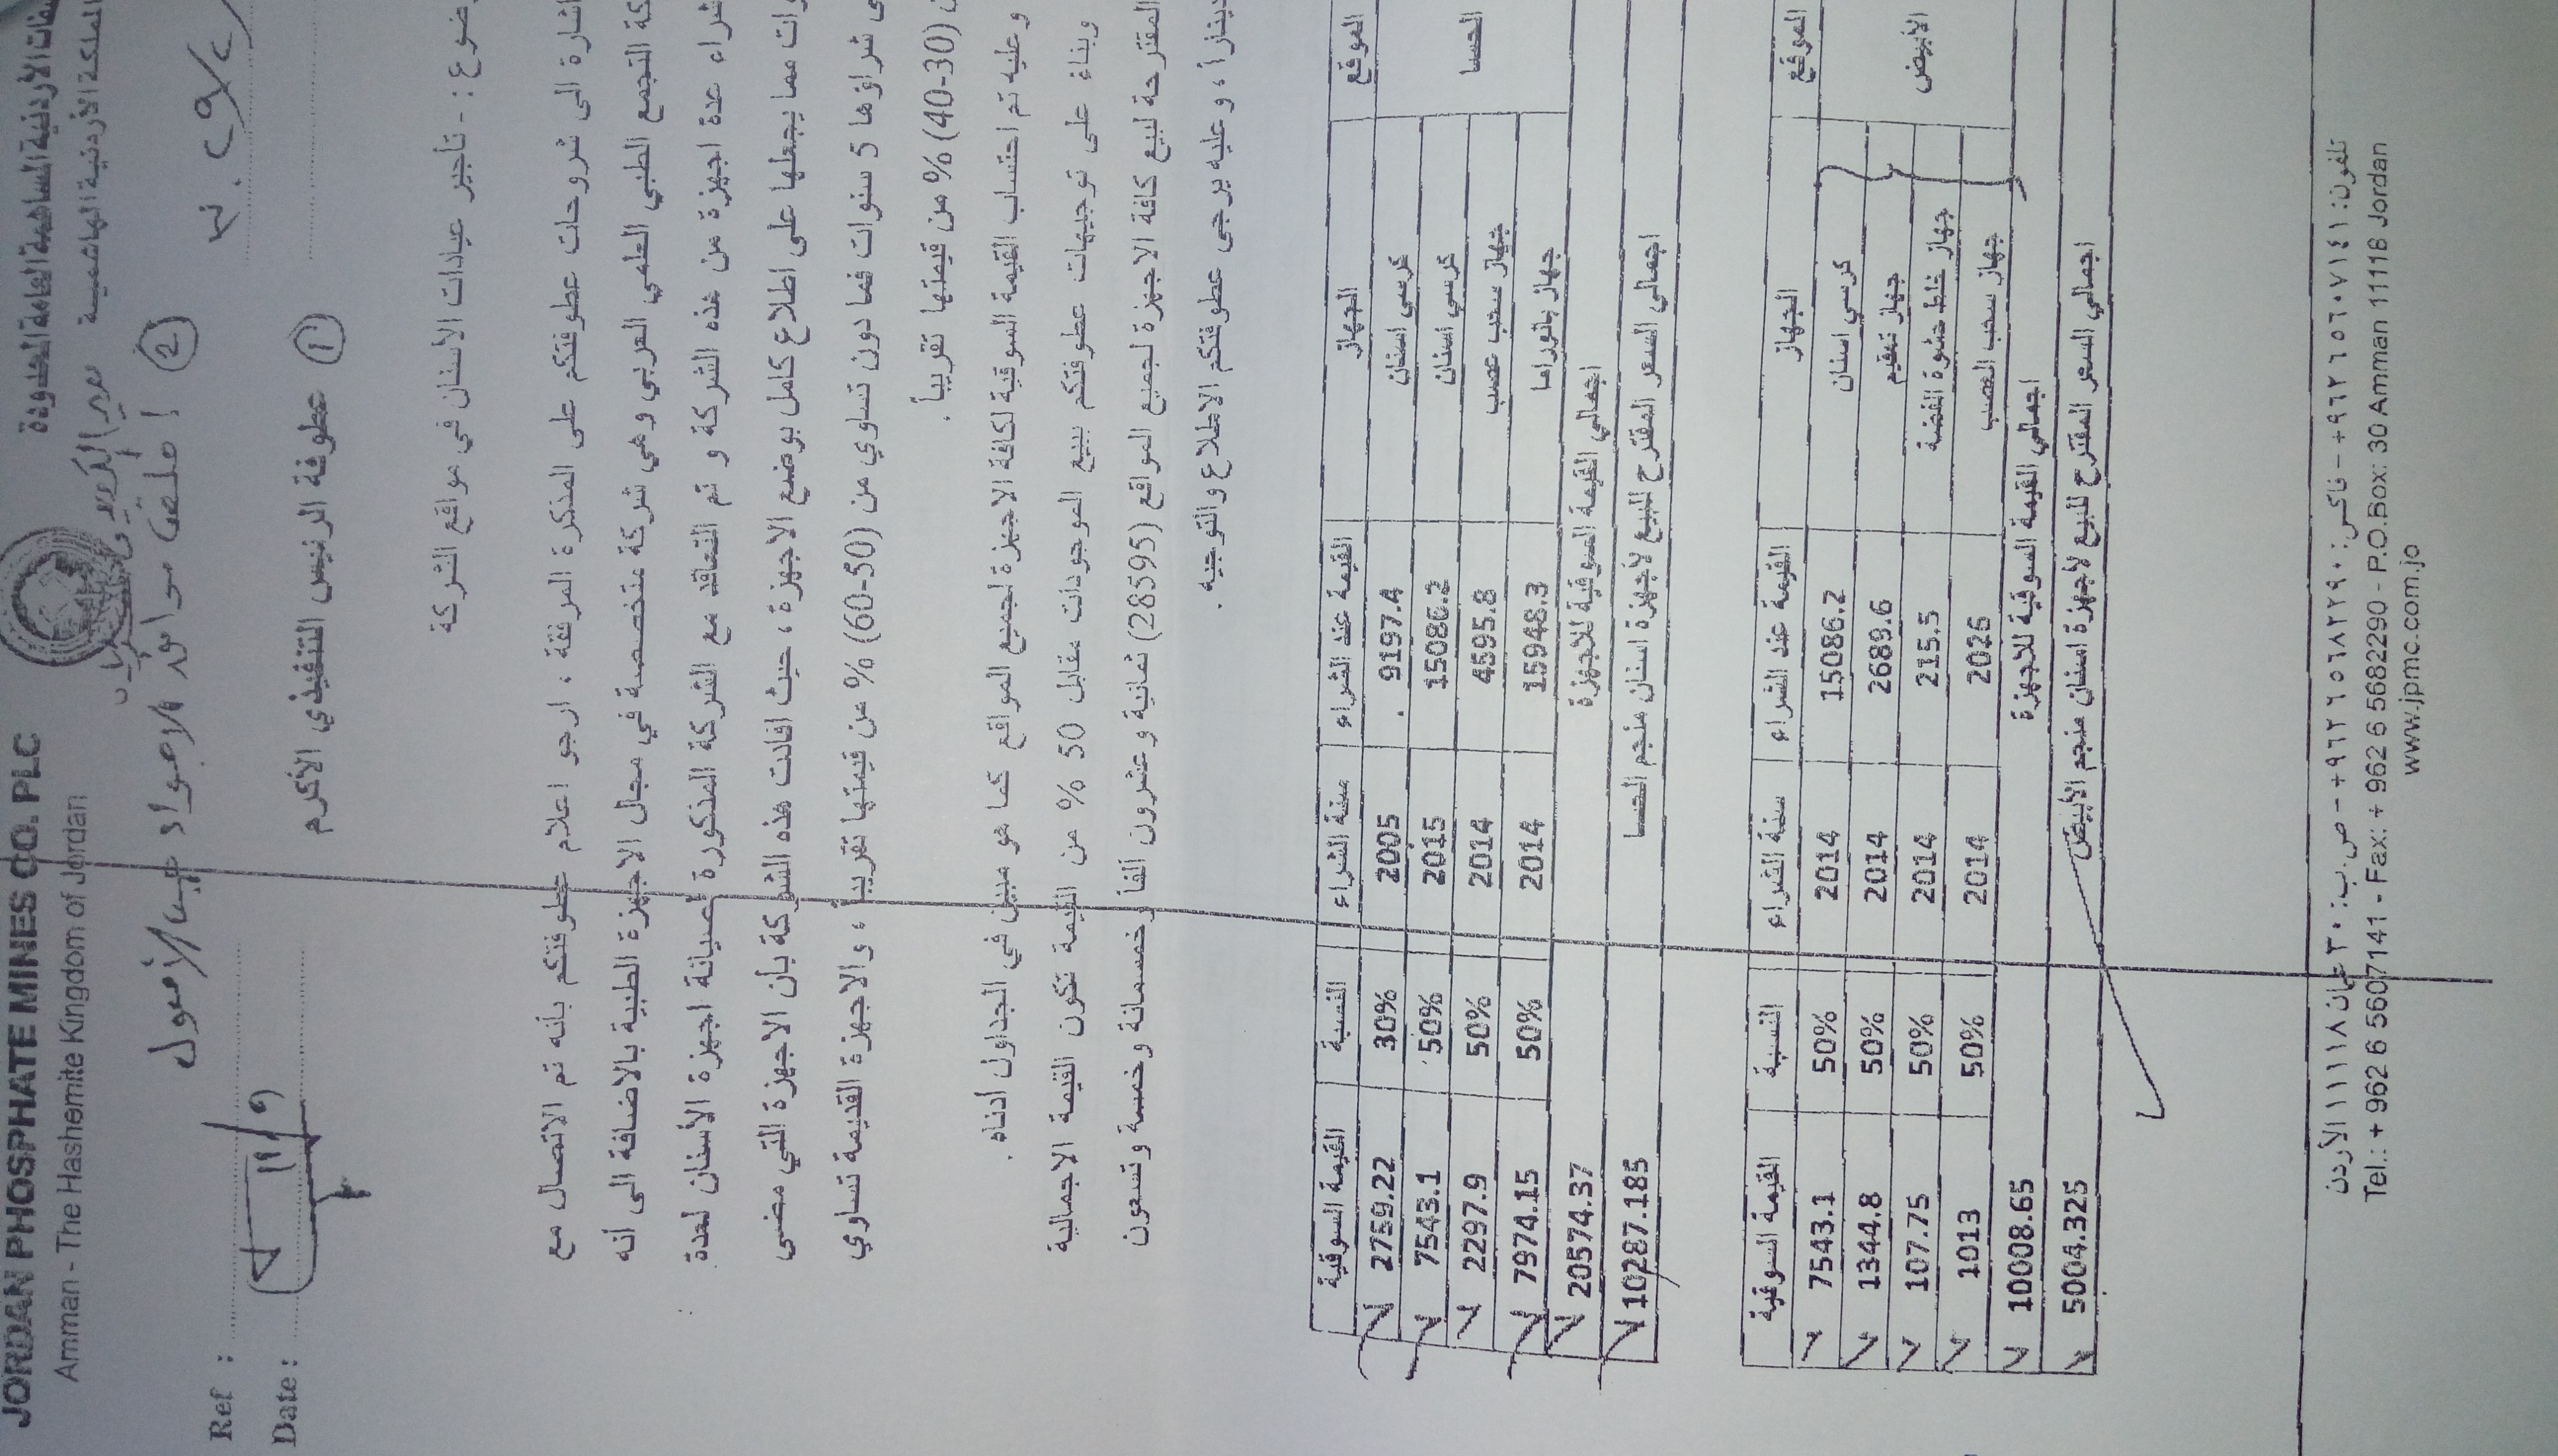 JORDAN PHOSPHATE MINES CO. PLC
Amman - The Hashemite Kingdom of Jordan
الأردنية المساهمة العامة المحدودة
المملكة الأردنية الهاشمية
Ref :
Date :
11/9
2
1
عطوفة الرئيس التنفيذي الأكرم
ضوع : - تأجير عيادات الاسنان في مواقع الشركة
اشارة الى شروحات عطوفتكم على المذكرة المرفقة ، ارجو اعلام عطوفتكم بأنه تم الاتصال مع
كة التجمع الطبي العلمي العربي وهي شركة متخصصة في مجال الاجهزة الطبية بالاضافة الى أنه
شراء عدة اجهزة من هذه الشركة و تم التعاقد مع الشركة المذكورة لصيانة اجهزة الأسنان لعدة
وات مما يجعلها على اطلاع كامل بوضع الاجهزة ، حيث افادت هذه الشركة بأن الاجهزة التي مضى
ى شراؤها 5 سنوات فما دون تساوي من (50-60) % من قيمتها تقريباً ، والاجهزة القديمة تساوي
(30-40) % من قيمتها تقريباً .
وعليه تم احتساب القيمة السوقية لكافة الاجهزة لجميع المواقع كما هو مبين في الجداول أدناه .
وبناء على توجيهات عطوفتكم ببيع الموجودات مقابل 50 % من القيمة تكون القيمة الاجمالية
المقترحة لبيع كافة الاجهزة لجميع المواقع (28595) ثمانية وعشرون ألفاً وخمسمائة وخمسة وتسعون
ديناراً ، وعليه يرجى عطوفتكم الاطلاع والتوجيه .
الموقع الجهاز القيمة عند الشراء سنة الشراء النسبة القيمة السوقية
الحسا كرسي اسنان 9197.4 2005 30% 2759.22
كرسي اسنان 15086.2 2015 50% 7543.1
جهاز سحب عصب 4595.8 2014 50% 2297.9
جهاز بانوراما 15948.3 2014 50% 7974.15
اجمالي القيمة السوقية للاجهزة 20574.37
اجمالي السعر المقترح للبيع لاجهزة اسنان منجم الحسا 10287.185
الموقع الجهاز القيمة عند الشراء سنة الشراء النسبة القيمة السوقية
الأبيض كرسي اسنان 15086.2 2014 50% 7543.1
جهاز تعقيم 2689.6 2014 50% 1344.8
جهاز خلط حشوة الفضة 215.5 2014 50% 107.75
جهاز سحب العصب 2026 2014 50% 1013
اجمالي القيمة السوقية للاجهزة 10008.65
اجمالي السعر المقترح للبيع لاجهزة اسنان منجم الأبيض 5004.325
تلفون: ٩٦٢٦٥٦٠٧١٤١+ – فاكس: ٩٦٢٦٥٦٨٢٢٩٠+ – ص.ب: ٣٠ عمان ١١١١٨ الأردن
Tel.: + 962 6 5607141 - Fax: + 962 6 5682290 - P.O.Box: 30 Amman 11118 Jordan
www.jpmc.com.jo